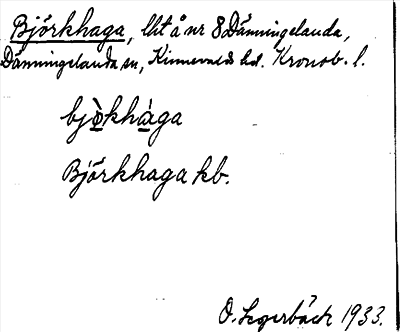 Björkhaga, lht å nr 8 Dänningelanda,
Dänningelanda sn, Kinnevalds hd. Kronob. l.
bjö̀khàga
Björkhaga kb.
O. Segerbäck 1933.